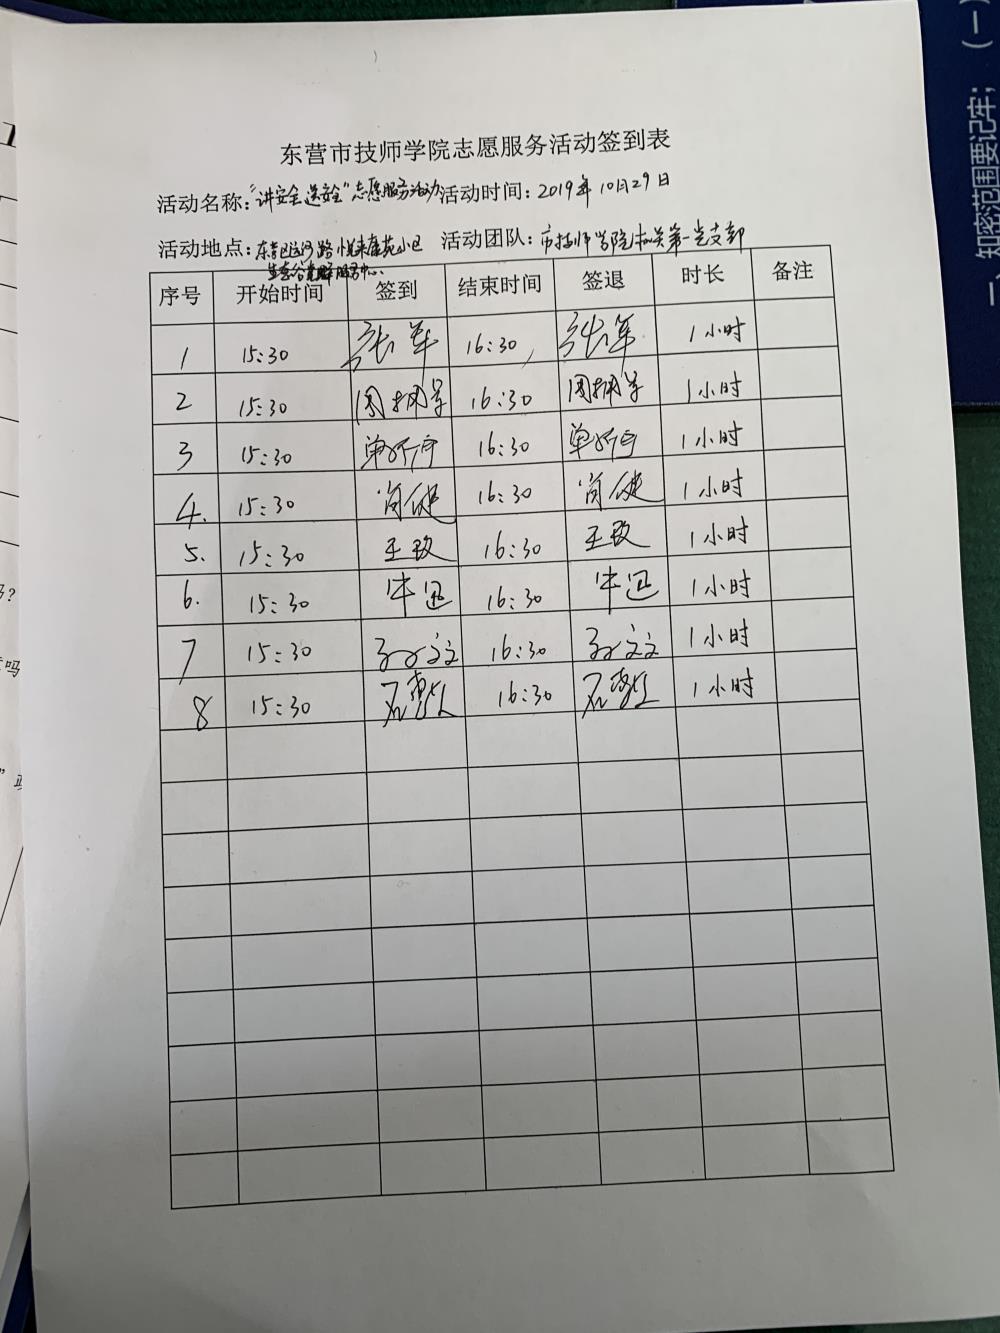 东营市技师学院志愿服务活动签到表
活动名称:"讲安全 送安全"志愿服务活动 活动时间: 2019年10月29日
活动地点: 东营区运河路悦来康苑小区 活动团队: 市技师学院机关第一党支部
序号 开始时间 签到 结束时间 签退 时长 备注
1 15:30 张军 16:30 张军 1小时
2 15:30 16:30 1小时
3 15:30 16:30 1小时
4. 15:30 肖健 16:30 肖健 1小时
5. 15:30 王玫 16:30 王玫 1小时
6. 15:30 牛迅 16:30 牛迅 1小时
7 15:30 孙文文 16:30 孙文文 1小时
8 15:30 16:30 1小时
一、知密范围要记牢; (一)